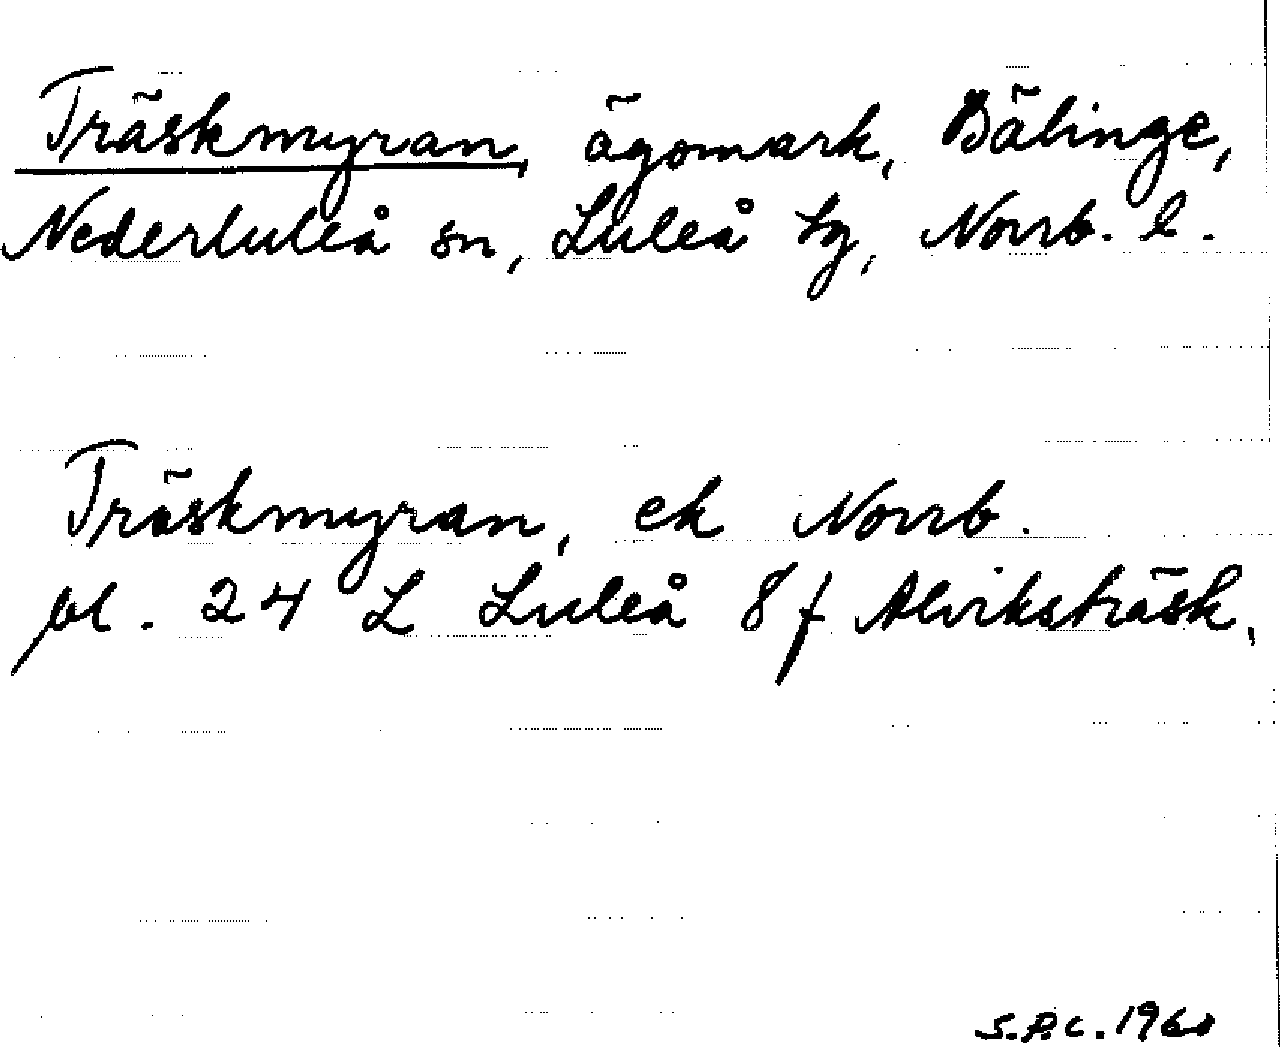 Träskmyran, ägomark, Bälinge,
Nederluleå sn, Luleå tg, Norrb. l.
Träskmyran, ek Norrb.
bl. 24 L Luleå 8 f Alviksträsk,
S.P.C. 1960